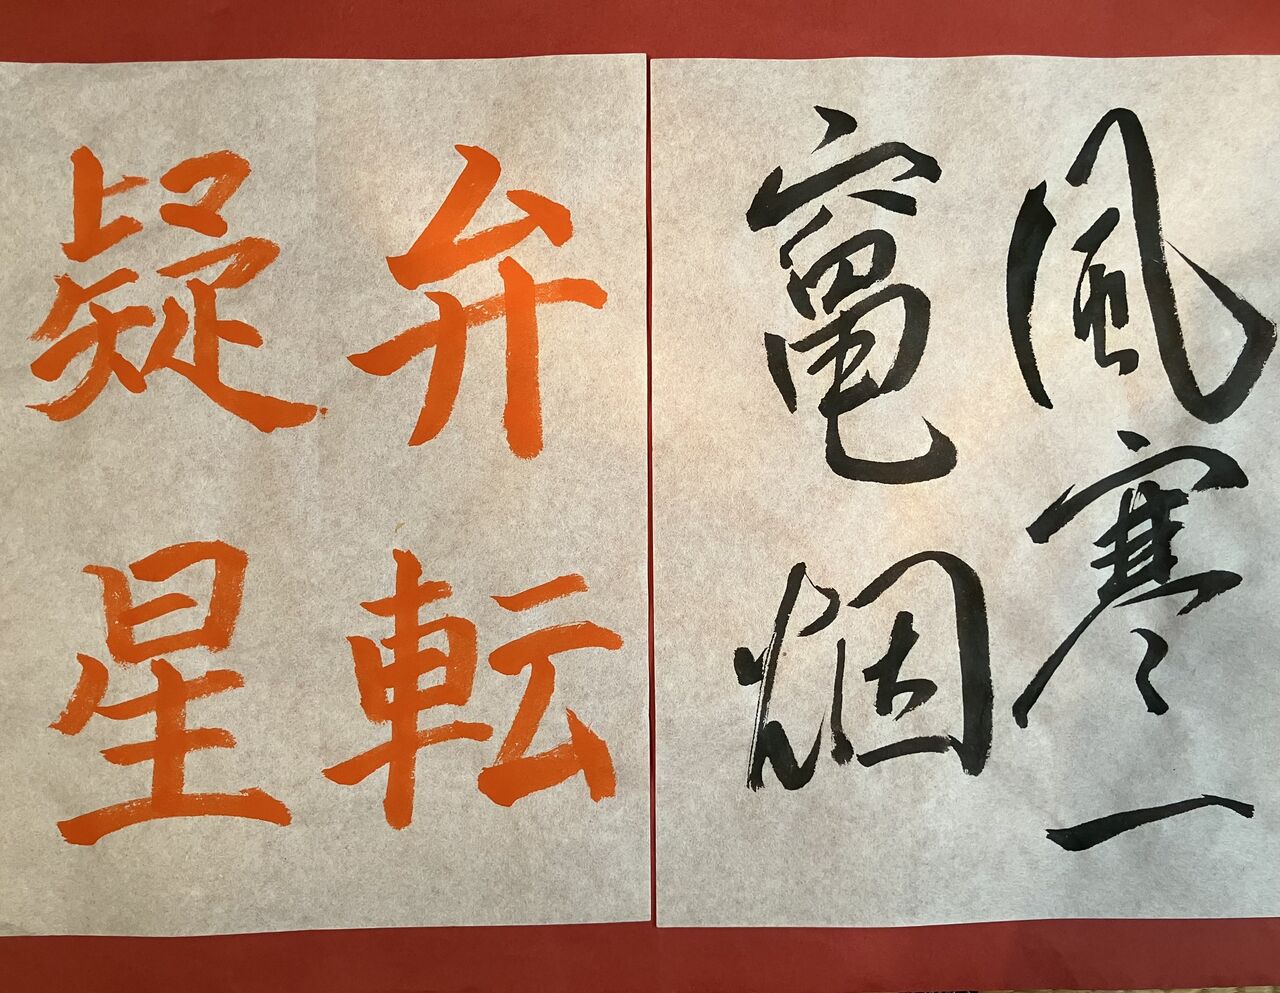 風寒一
竈烟
弁転
疑星